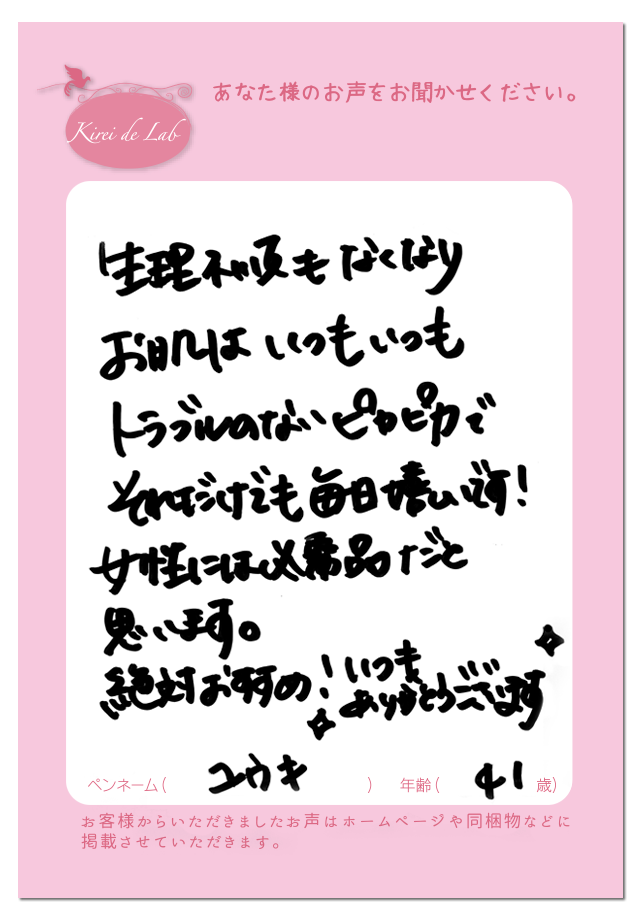 あなた様のお声をお聞かせください。
Kirei de Lab
生理不順もなくなり
お肌はいつもいつも
トラブルのないピカピカで
それだけでも毎日嬉しいです!
女性には必需品だと
思います。
絶対おすすめ!いつも
ありがとうございます
ペンネーム( ユウキ ) 年齢( 41 歳)
お客様からいただきましたお声はホームページや同梱物などに
掲載させていただきます。